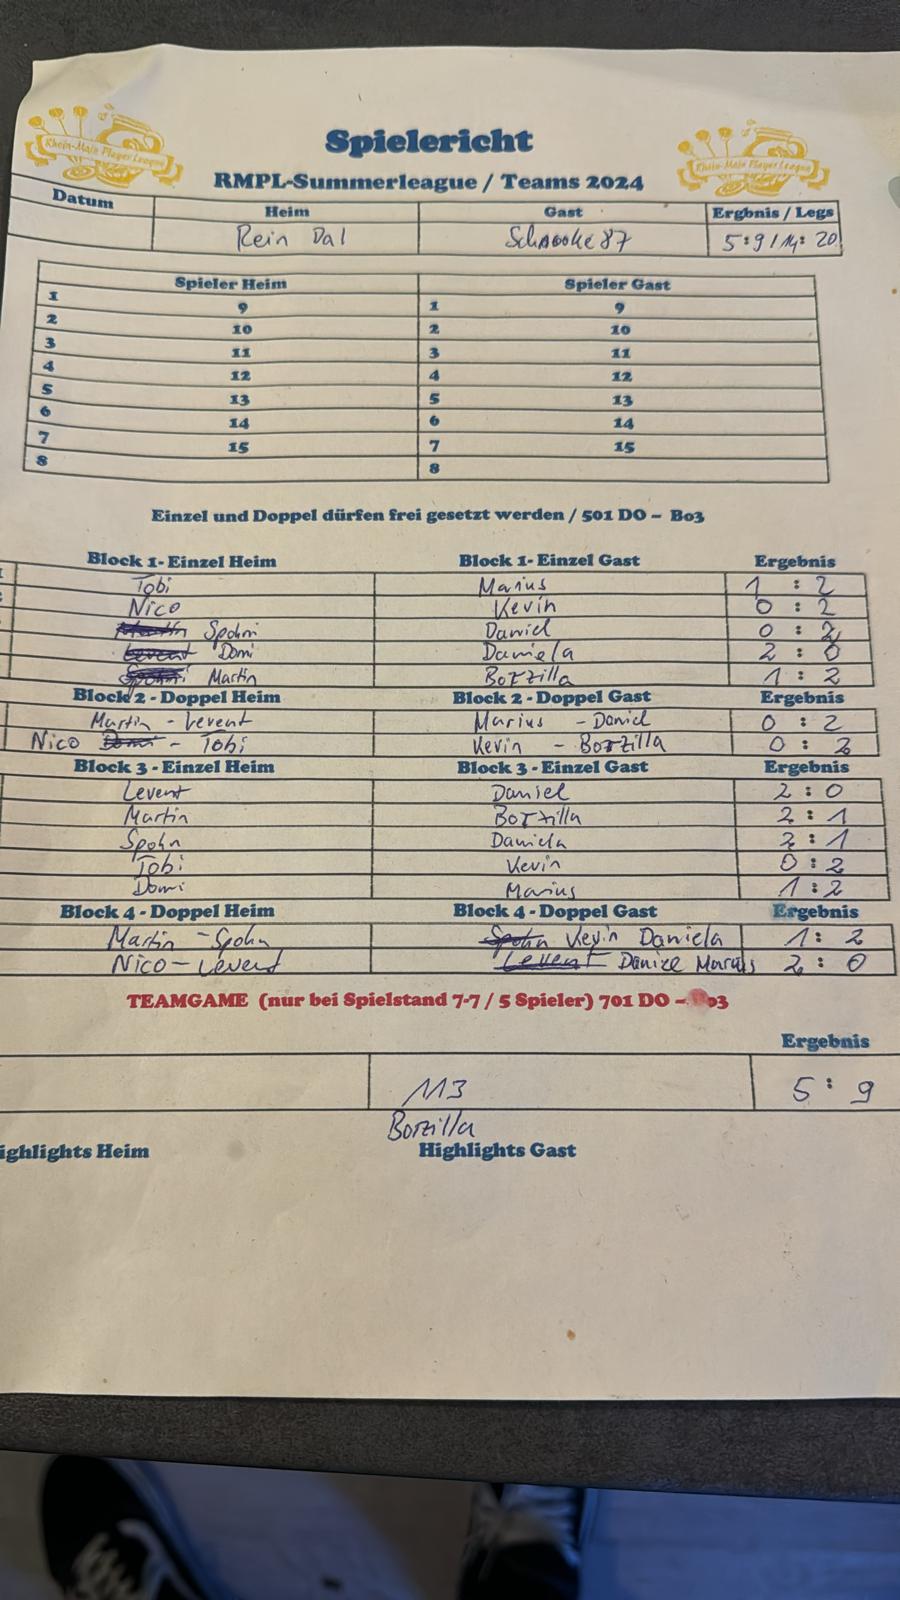 Rhein-Main Player League
Rhein-Main Player League
Spielericht
RMPL-Summerleague / Teams 2024
Datum Heim Gast Ergbnis / Legs
Rein Dal 87 5:9 / 14: 20
Spieler Heim Spieler Gast
1 9 1 9
2 10 2 10
3 11 3 11
4 12 4 12
5 13 5 13
6 14 6 14
7 15 7 15
8 8
Einzel und Doppel dürfen frei gesetzt werden / 501 DO - Bo3
Block 1- Einzel Heim Block 1- Einzel Gast Ergebnis
Tobi Marius 1 : 2
Nico Kevin 0 : 2
Martin Spohn Daniel 0 : 2
Levent Domi Daniela 2 : 0
Spohn Martin Borzilla 1 : 2
Block 2 - Doppel Heim Block 2 - Doppel Gast Ergebnis
Martin - Levent Marius - Daniel 0 : 2
Nico Domi - Tobi Kevin - Borzilla 0 : 2
Block 3 - Einzel Heim Block 3 - Einzel Gast Ergebnis
Levent Daniel 2 : 0
Martin Borzilla 2 : 1
Spohn Daniela 2 : 1
Tobi Kevin 0 : 2
Domi Marius 1 : 2
Block 4 - Doppel Heim Block 4 - Doppel Gast Ergebnis
Martin - Spohn Spohn Kevin Daniela 1 : 2
Nico - Levent Levent Marius 2 : 0
TEAMGAME (nur bei Spielstand 7-7 / 5 Spieler) 701 DO - Bo3
Ergebnis
113 5 : 9
Borzilla
ighlights Heim Highlights Gast